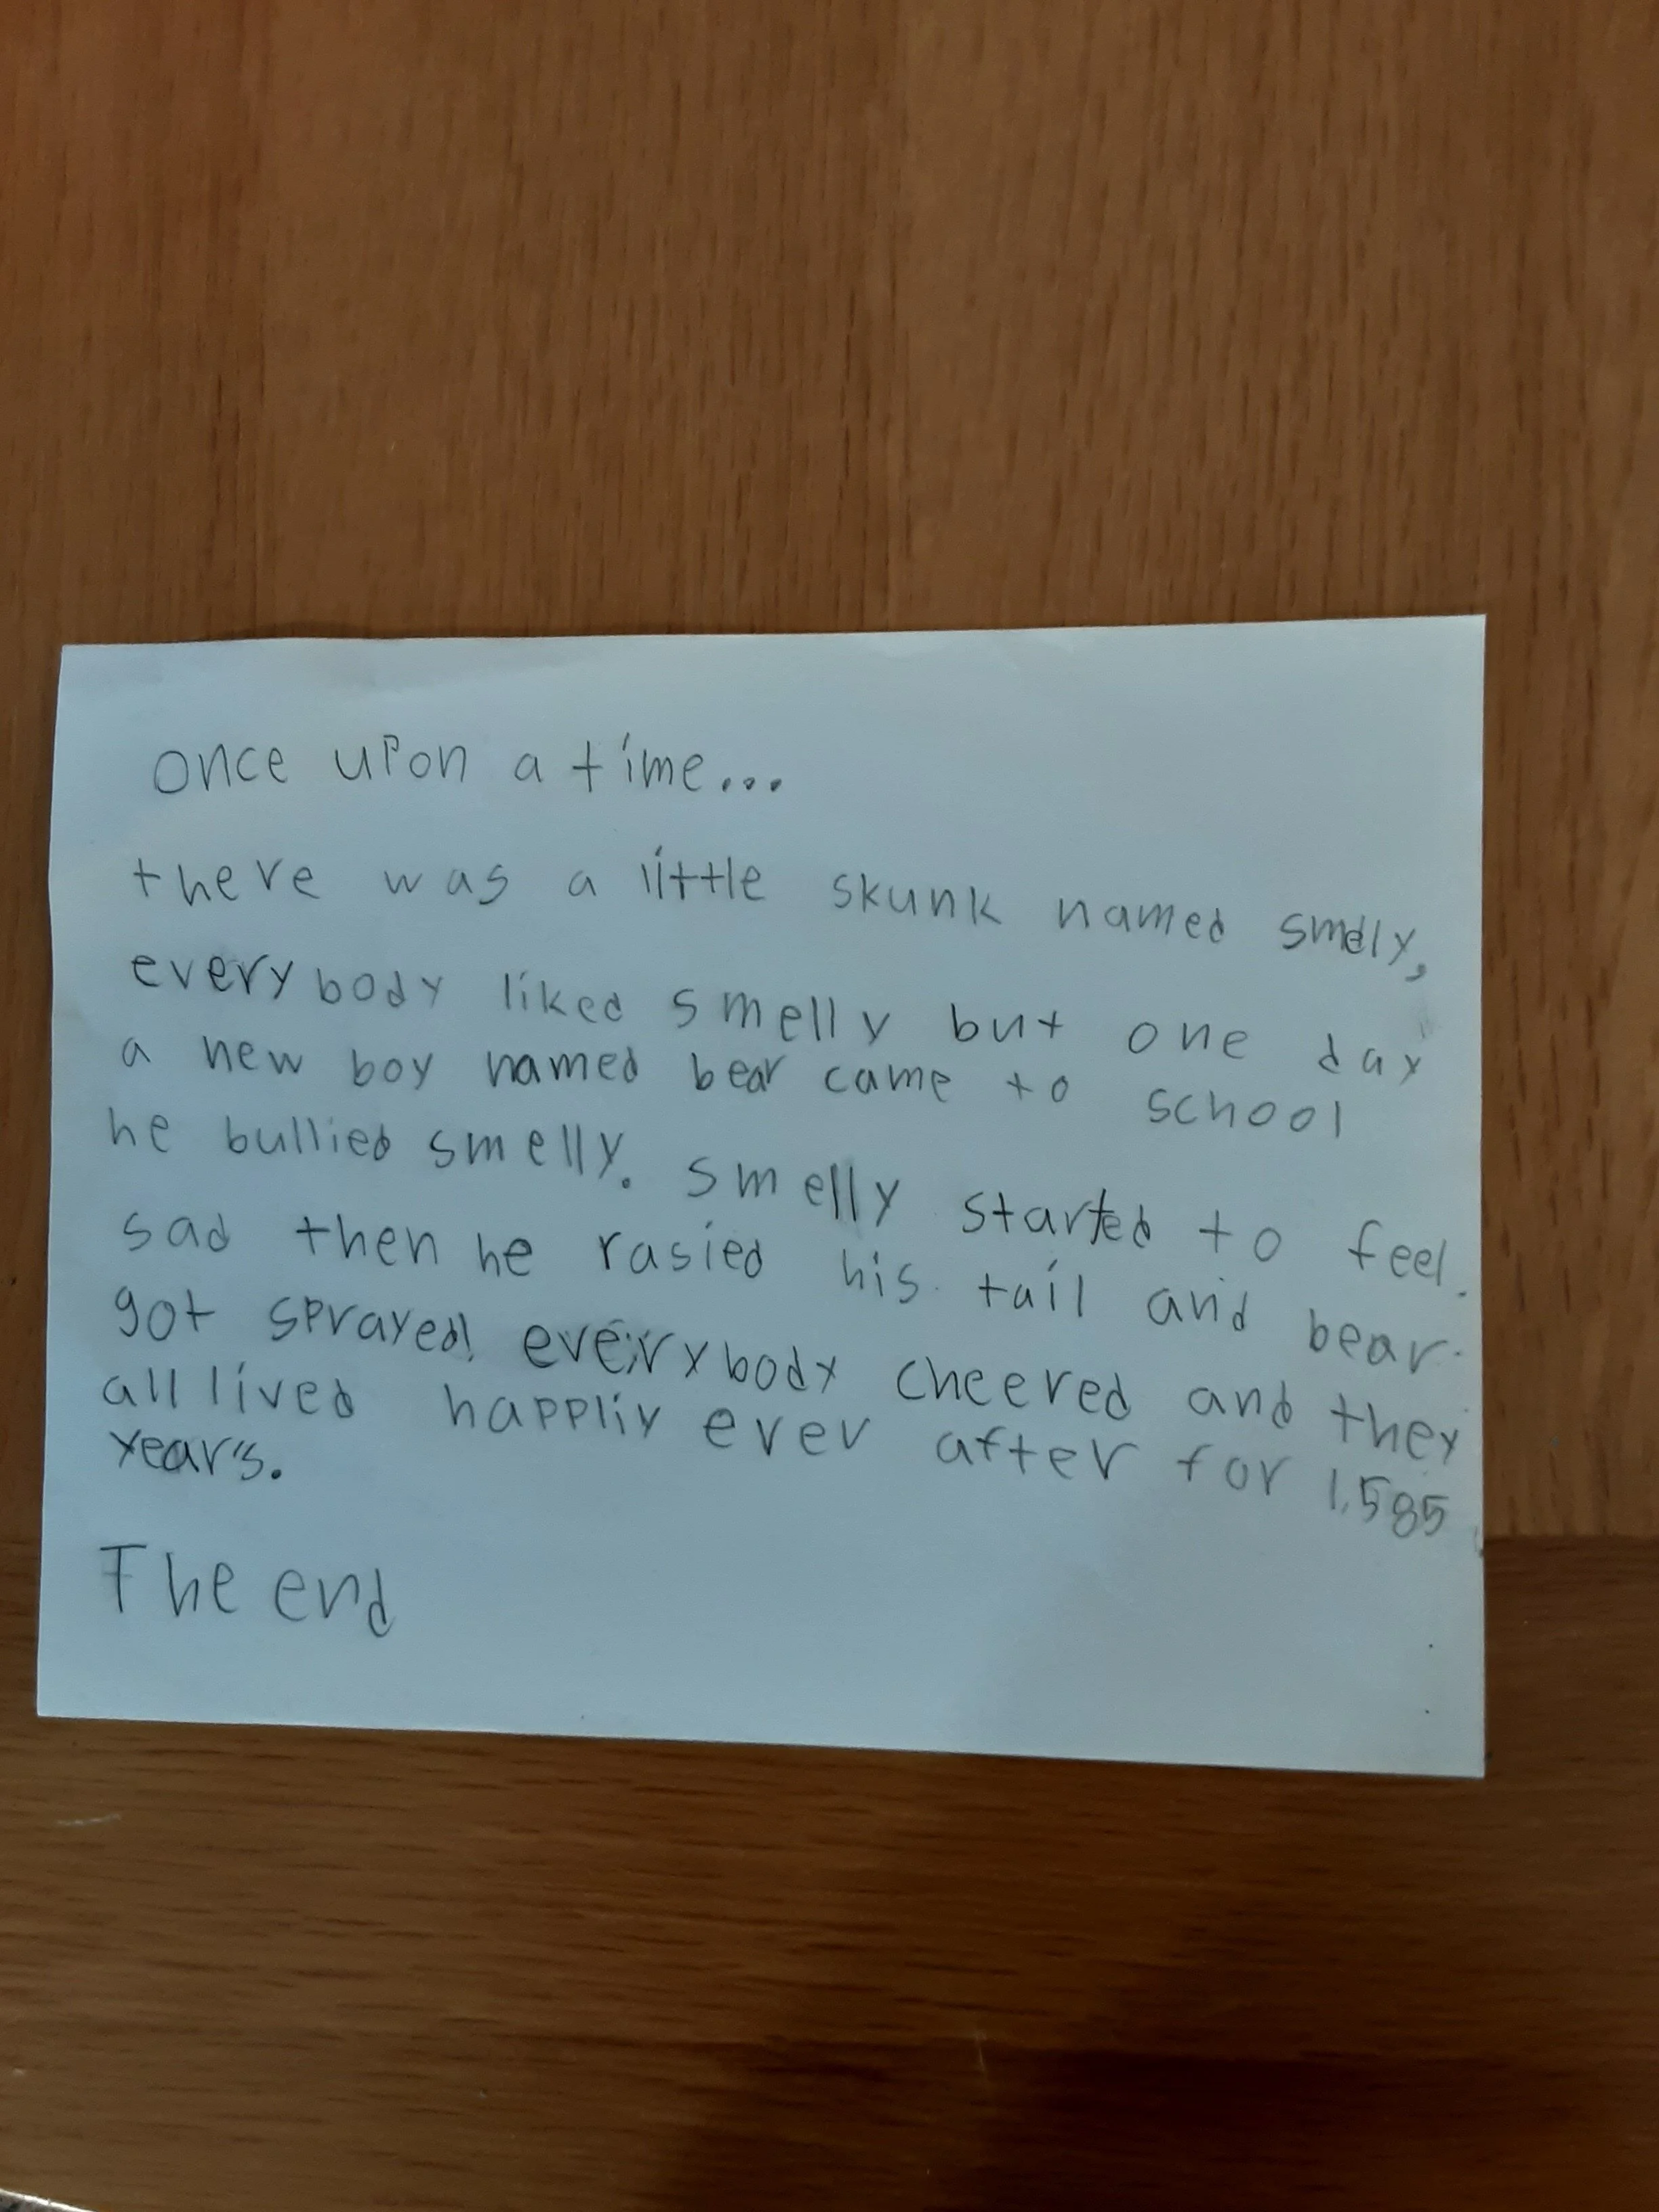 once upon a time...
there was a little skunk named smelly,
everybody liked smelly but one day
a new boy named bear came to school
he bullied smelly. smelly started to feel
sad then he rasied his tail and bear
got sprayed! everybody cheered and they
all lived happliy ever after for 1,585
years.
The end